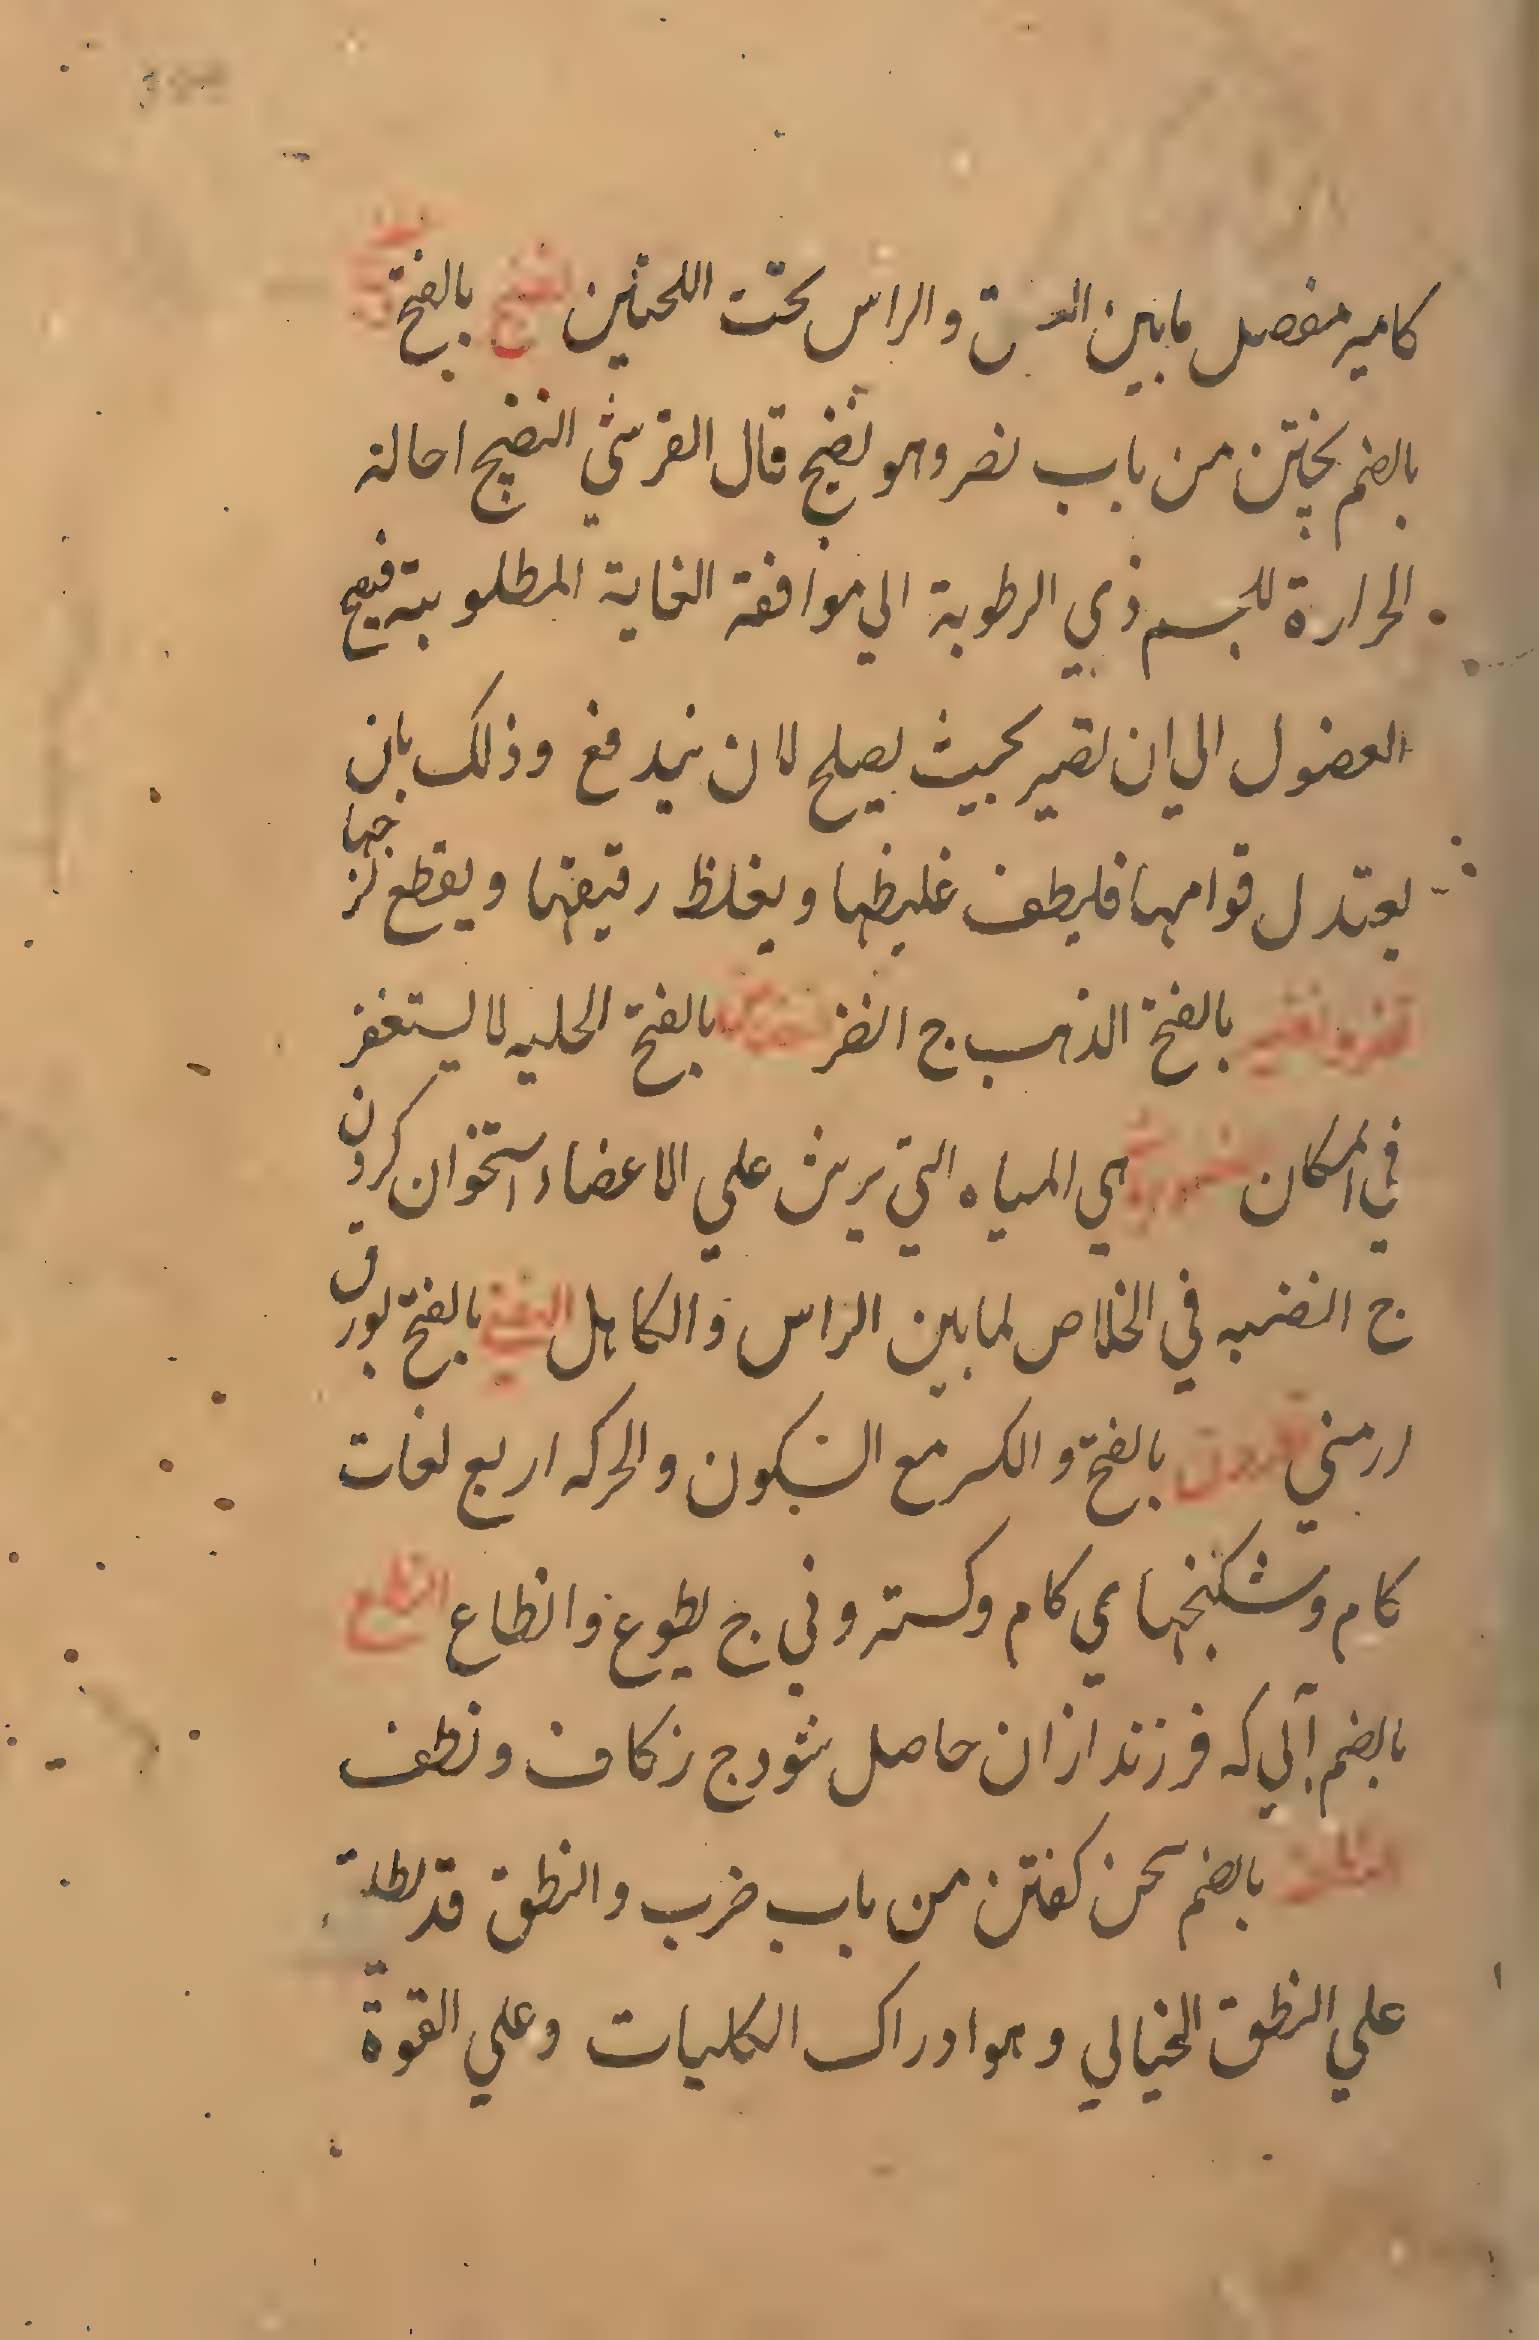 كامير مفصل مابين العنق والراس تحت اللحيين نضج بالفتح
بالضم پختن من باب نصر وهو نضيج قال القرشي النضيج احالة
الحرارة للجسم ذي الرطوبة الي موافقة الغاية المطلوبة فيضج
الفضول الي ان تصير بحيث يصلح لان يندفع وذلك بان
يعتدل قوامها فليطف غليظها ويغلظ رقيقها ويقطع لزجها
نضر ونضير بالفتح الذهب ج انضر بالفتح الحليه لا ليستغفر
في المكان هي المياه التي يرش علي الاعضاء استخوان كردن
ج انضبه في الخلاص لما بين الراس والكاهل بالفتح بورق
ارمني بالفتح والكسر مع السكون والحركه اربع لغات
كام وشكنجهاي كام وكسته وني ج نطوع وانطاع النطع
بالضم آبي كه فرزند ازان حاصل شود ج زكاف ونطف
النطق بالضم سخن كفتن من باب ضرب والنطق قد يطلق
علي النطق الخيالي وهو ادراك الكليات وعلي القوة